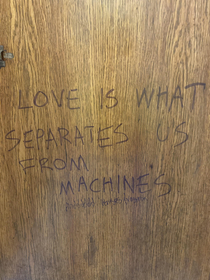 LOVE IS WHAT
SEPARATES US
FROM
MACHINES